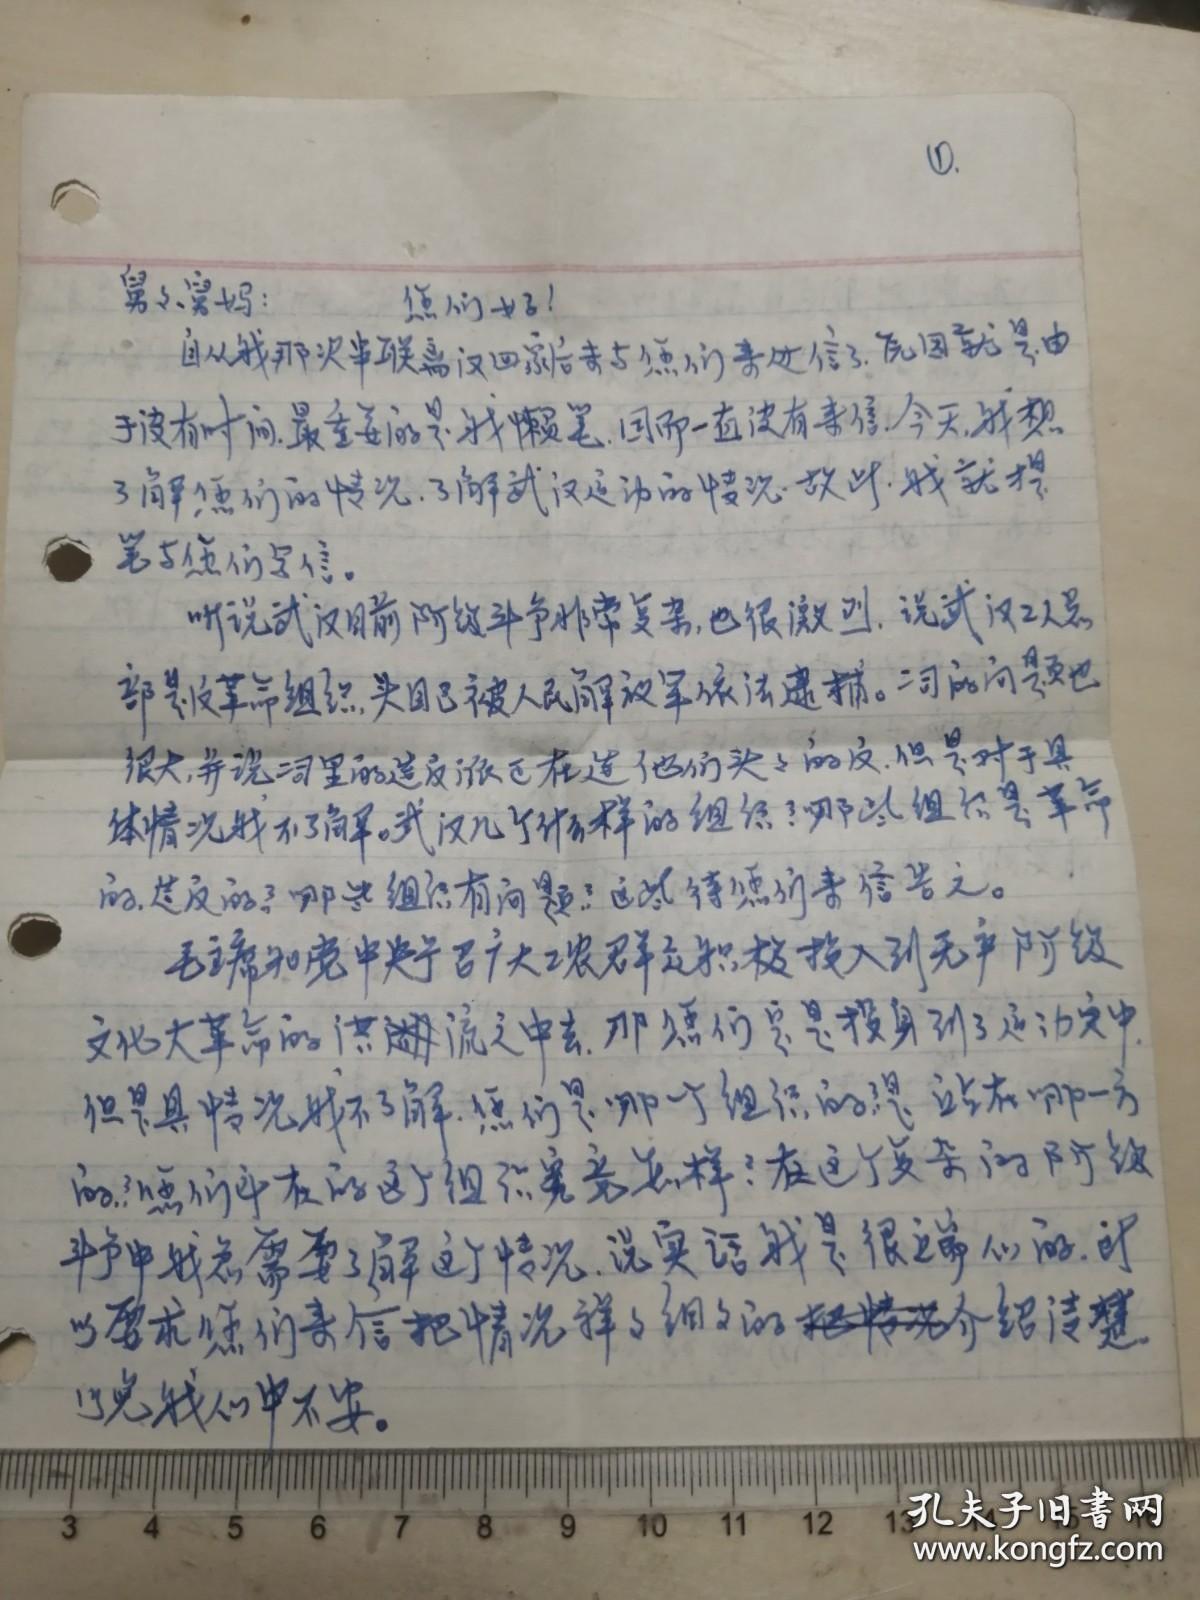 ①.
舅々、舅妈:　　您们好!
自从我那次串联离汉回家后未与您们来过信了.原因就是由
于没有时间.最重要的是我懒笔.因而一直没有来信.今天,我想
了解您们的情况.了解武汉运动的情况.故此.我就提
笔与您们写信。
听说武汉目前阶级斗争非常复杂,也很激烈.说武汉工人总
部是反革命组织,头目已被人民解放军依法逮捕。二司的问题也
很大,并说二司里的造反派正在造他们头々的反.但是对于具
体情况我不了解。武汉几个什么样的组织?哪些组织是革命
的.造反的?哪些组织有问题?这些待您们来信告之。
毛主席和党中央号召广大工农群众积极投入到无产阶级
文化大革命的洪流之中去.那您们定是投身到了运动之中.
但是具情况我不了解.您们是哪一个组织的?是站在哪一方
的?您们所在的这个组织究竟怎样?在这个复杂的阶级
斗争中我急需要了解这个情况.说实话我是很迫心的.所
以要求您们来信把情况详々细々的把情况介绍清楚.
以免我心中不安。
3 4 5 6 7 8 9 10 11 12 13
孔夫子旧书网
www.kongfz.com